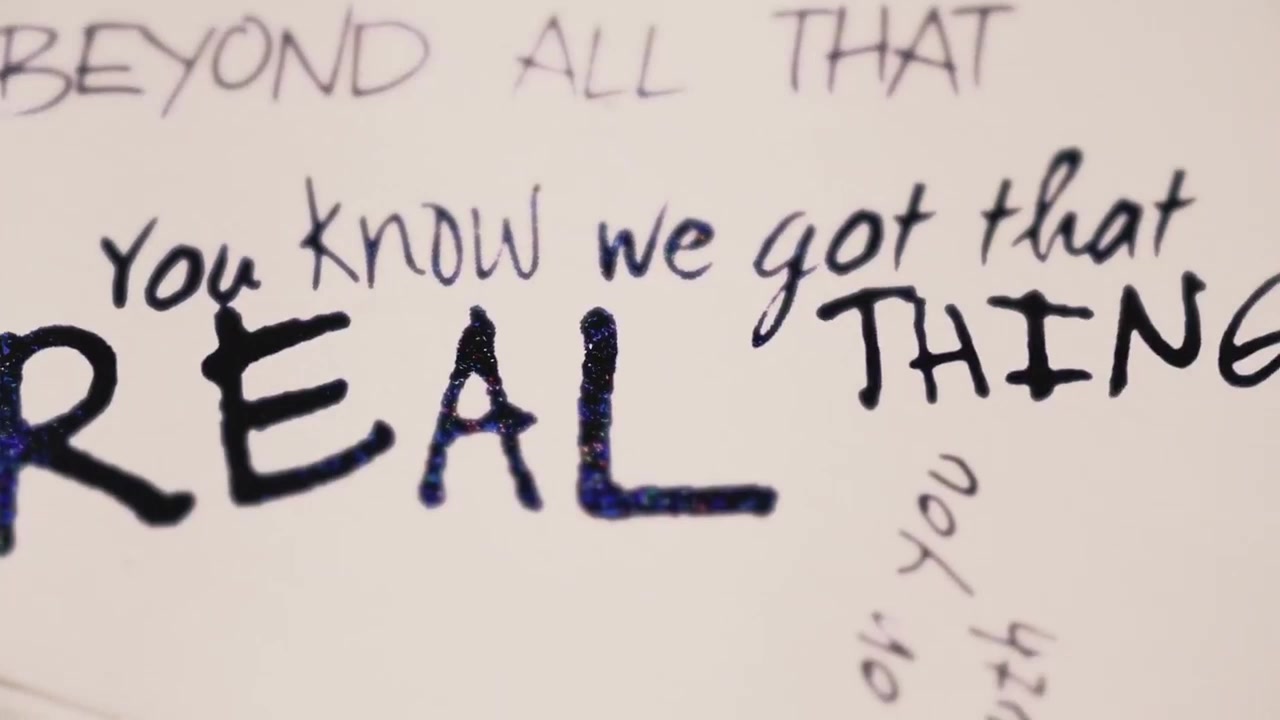 BEYOND ALL THAT
You know we got that
REAL THING
or you